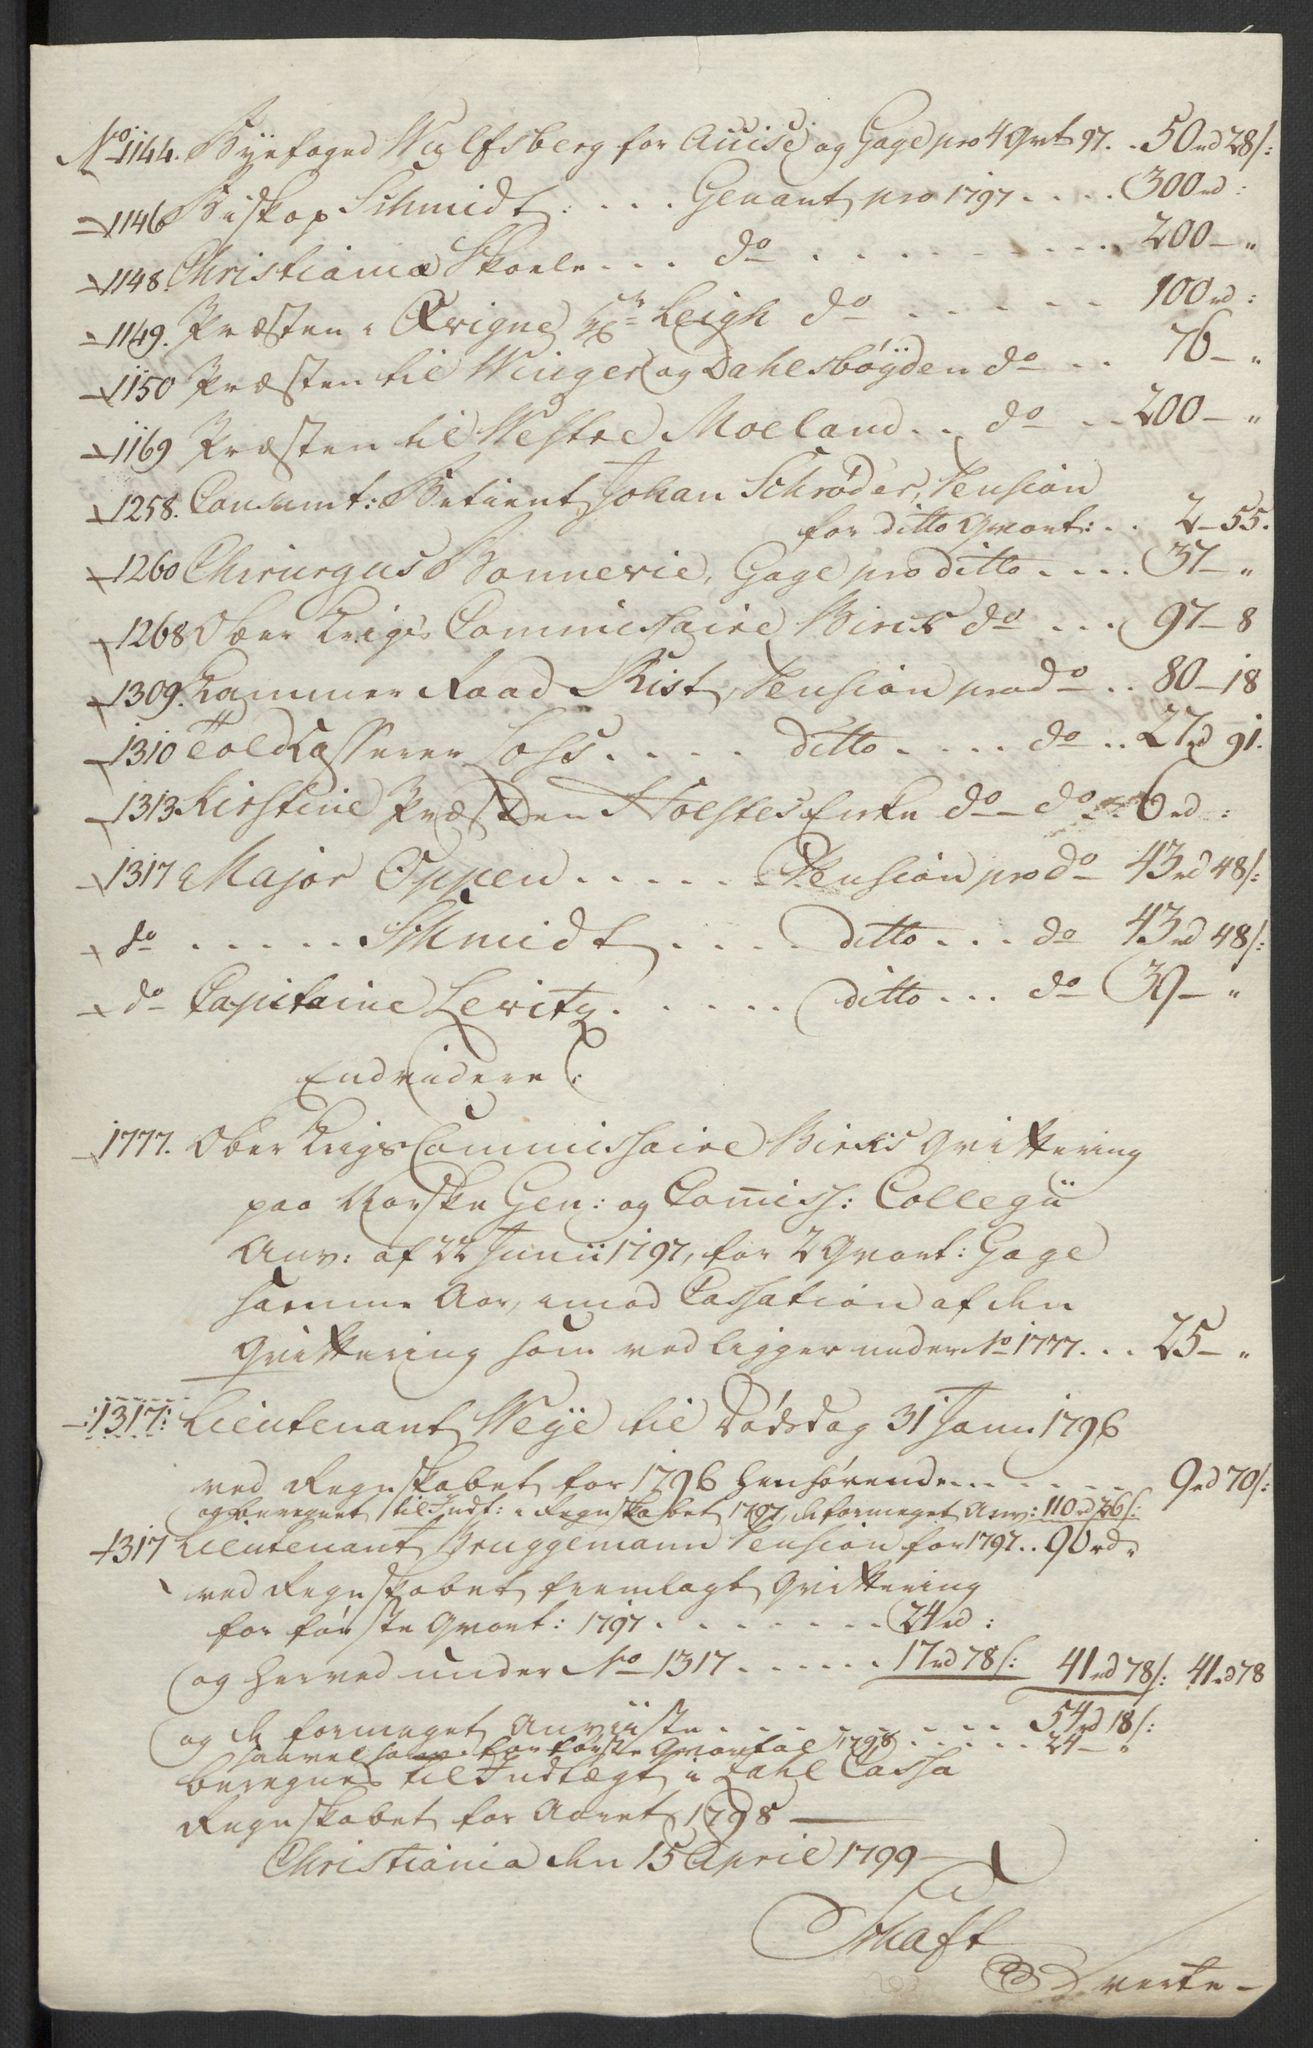 No 1144. Byefoged Wulfsberg for Accise og Gage pro 4 Qvrt 97. . 50 rd 28 s:
1146 Biskop Schmidt . . . . Genant pro 1797 . . . . 300 rd :
1148. Christiania Skoele . . . do . . . . . . . . . 200 — "
1149. Præsten i Qvigne Hr Leigh do . . . . . . 100 rd :
1150 Præsten til Winger og Dahlsbøyden do . . 76 — "
1169 Præsten til Westre Moeland . . do . . 200 — "
1258. Consumt: Betient Johan Schrøder, Pension
for ditto Qvart: . . 2 — 55.
1260 Chirurgus Bonnevie, Gage pro ditto . . . . 37 — "
1268 Ober Krigs Commissaire Birck do . . . 97 — 8
1309. Kammer Raad Rist, Pension pro do . . 80 — 18
1310 Told Casserer Foss . . . . . ditto . . . . do . . 27 rd 91.
1313 Kirstine Præsten Holstes Enke do — do . . 6 rd :
1317 Major Oppen . . . . . . Pension pro do 43 rd 48 s:
do . . . . . Schmidt . . . . ditto . . . do 43 rd 48 s:
do Capitaine Lewitz . . . . . ditto . . . do 39 — "
Endvidere :
1777. Ober Krigs Commissaire Bircks Qvittering
paa Norske Gen: og Com̄iss: Collegii
Anv: af 22 Junii 1797, for 2 Qvart: Gage
samme Aar, imod Cassation af den
Qvittering som ved ligger under No 1777 . . . 25 — "
1317: Lieutenant Weye til Dødsdag 31 Janu: 1796
ved Regnskabet for 1796 henhørende . . . . . . 9 rd 70 s:
og beregnet til Indt: i Regnskabet 1797, de formeget Anv: 110 rd 26 s:
1317 Lieutenant Bruggemann Pension for 1797 . . 96 rd "
ved Regnskabet fremlagt Qvittering
for første Qvart: 1797 . . . . . . . 24 rd :
og herved under No 1317 . . . . . . 17 rd 78 s: 41 rd 78 s: 41 rd 78
og de formeget Anviiste . . . . . . . . . . 54 rd 18 s:
saavel som for første Qvartal 1798 . . . . . 24 — "
beregnes til Indtægt i Zahl Cassa
Regnskabet for Aaret 1798 —
Christiania den 15 April 1799 —
Schaft
verte —